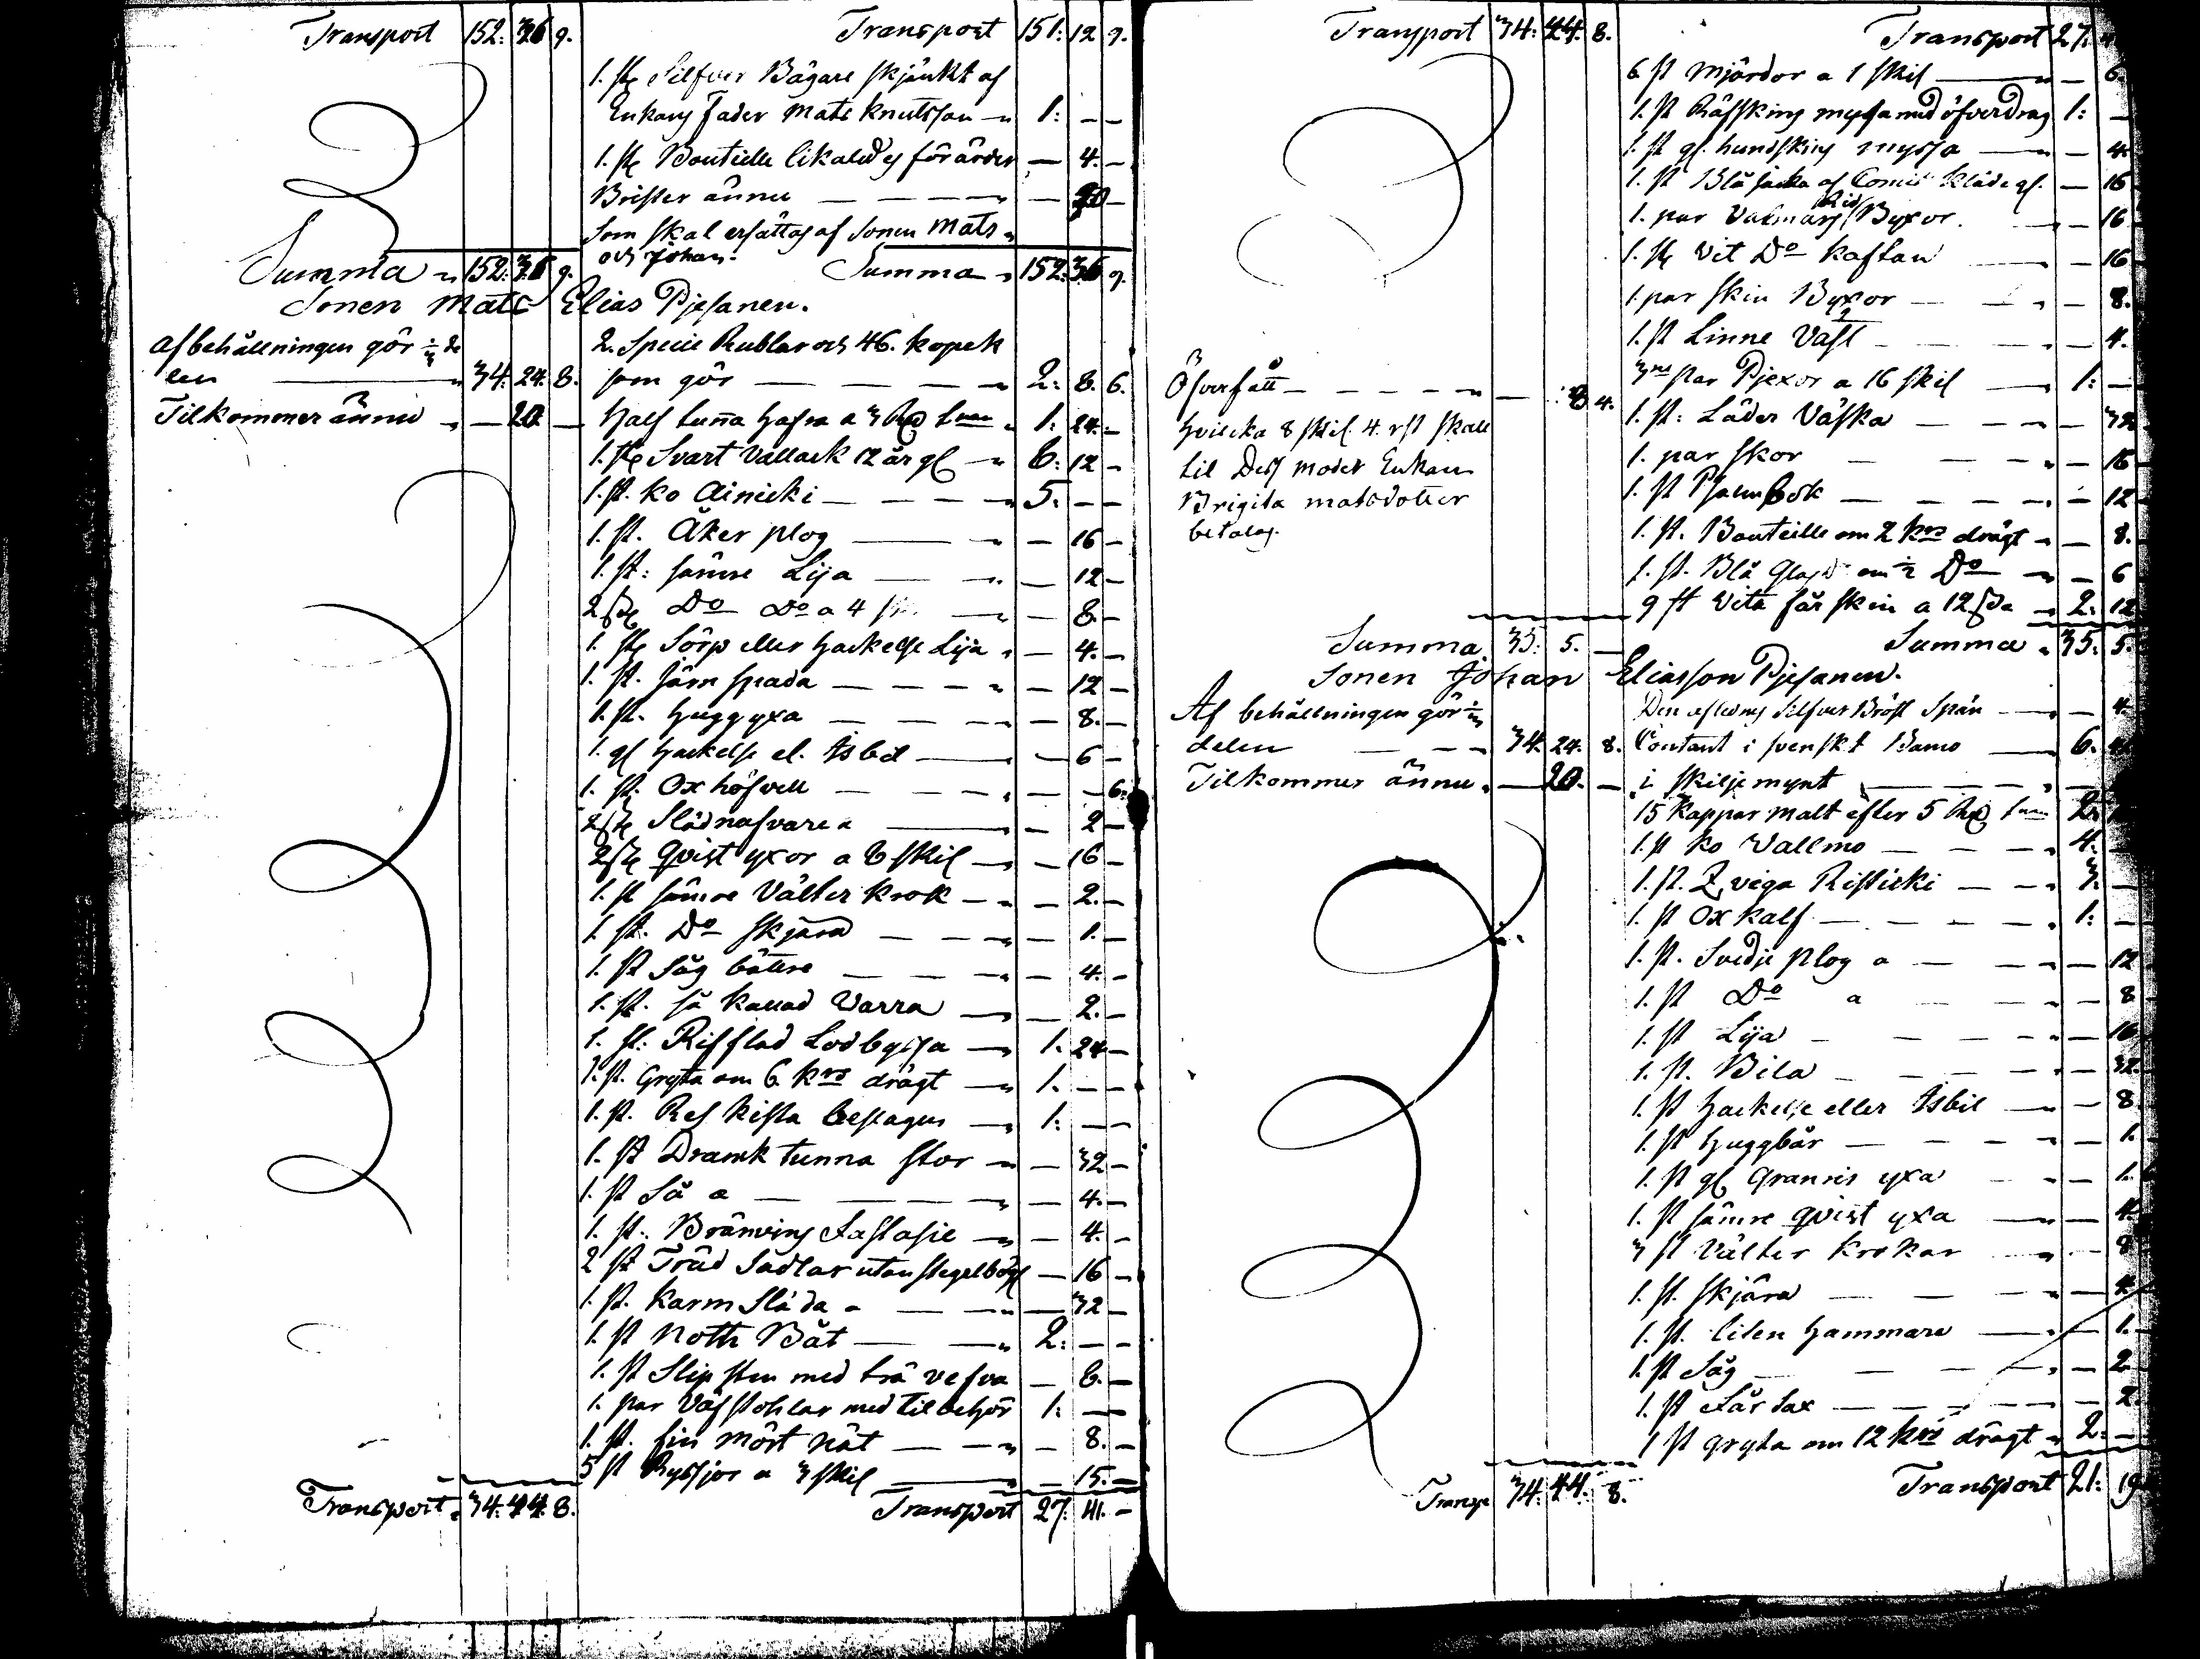 Transport 152: 36 9.
Summa 152: 36 9.
Transport 151: 12 9.
1. st Silfver Bägare skjänkt af
Enkans Fader Mats Knutsson 1: — —
1. st Bouteille likaledes förärder — 4. —
Brister ännu — 20 —
Som skal ersättas af Sonen Mats
och Johan.
Summa 152: 36 9.
Sonen Mats Elias Pjesanen.
Af behållningen gör de
len 34. 24. 8.
Tilkommer ännu — 20 —
Transport 34. 44. 8.
2. Specie Rublar och 46. kopek
som gör 2: 8. 6.
Half tunna Hafra a 3 1: 24. —
1. st Svart Vallack 12 år gl 6: 12 —
1. st. Ko Ainicki 5: — —
1. st. Åker plog — 16 —
1. st: sämre Lija — 12 —
2 st Do Do a 4 — 8. —
1. st Sörp eller Hackelse Lija — 4. —
1. st. järn spada — 12 —
1. st. Huggyxa — 8. —
1. gl Hackelse el. Isbil — 6 —
1. st. Ox höfvell — — 6.
2 st Slädnafvare — 2 —
2 st Qvist yxor a 8 skil — 16 —
1. st sämre Välter krok — 2. —
1. st. Do skjära — 1. —
1. st Såg bättre — 4. —
1. st. så kallad Varra — 2. —
1. st. Rifflad Lodbyssa 1. 24 —
1. st. Gryta om 6. kros drägt 1. — —
1. st. Res kista beslagen 1: — —
1. st Drank tunna stor — 32 —
1. st Så a — 4. —
1. st. Bränvins — 4. —
2 st Träd Sadlar utan stegelbögl — 16 —
1. st. Karm Släda — 32 —
1. st Noth Båt 2: — —
1. st Slipsten med trä vefva — 6. —
1. par Väf stohlar med tilbehör 1: —
1. st. fin Mört Nät — 8. —
5 st Ryssjor a 3 skil — 15. —
Transport 27: 41. —
Transport 34. 44. 8.
Öfverfått — 8 4.
Hvilcka 8 skil. 4. rst skall
til Dess moder Enkan
Brigita Matsdotter
betalas.
Summa 35. 5. —
Transport 27.
6 st Mjärdor a 1 skil — 6.
1. st Räfskins myssa med öfverdrag 1: —
1. st gl. hundskins myssa — 4.
1. st Blå af kläde gl. — 16
1. par Valmars Rid Byxor. — 16
1. st Vit Do kaftan — 16
1. par skin Byxor — 8.
1. st Linne Väst — 4.
3ne Par Pjexor a 16 skil 1: —
1. st: Läder Väska — 32
1. par skor — 16
1. st Psalmbok — 12
1. st. Bouteille om 2 kros drägt — 8.
1. st. Blå om ½ Do — 6
9 st Vita får skin a 12 2. 12
Summa 35. 5.
Sonen Johan Eliasson Pjesanen.
Af behållningen gör
delen 34. 24. 8.
Tilkommer ännu — 20. —
Transp 34. 44. 8.
Den aflednes Silfver Bröst Spän — 4.
Contant i svenskt Banco 6.
i skiljemynt
15 Kappar Malt efter 5 2.
1. st Ko Vallmo 4. —
1. st. Qviga Risticki 3. —
1. st Oxkalf 1: —
1. st. Svedje Plog a — 12
1. st Do a — 8
1. st Lija — 16
1. st. Bila — 32.
1. st Hackelse eller Isbil — 8
1. st Huggbår — 1.
1. st gl Granris yxa — 1.
1. st sämre Qvist yxa — 4.
3 st Välter krokar — 8
1. st. skjära — 4
1. st. liten Hammare — 1.
1. st Såg — 2
1. st Får Sax — 2.
1 st gryta om 12 kros drägt 2. —
Transport 21. 19